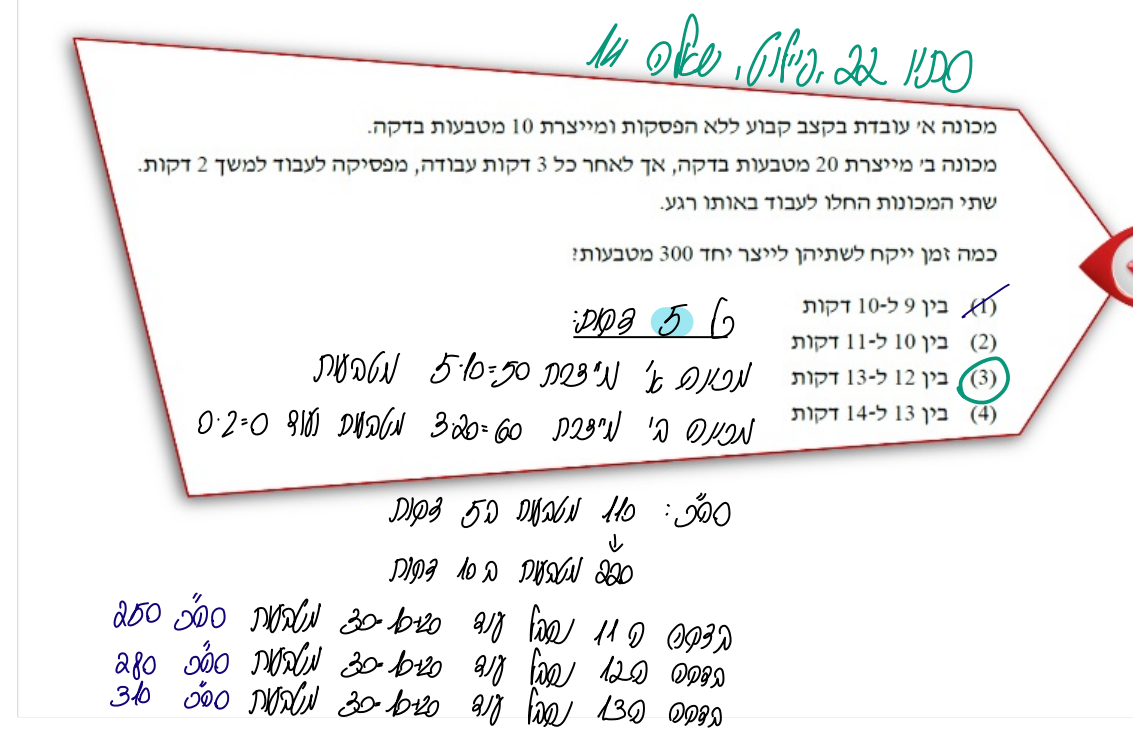 סתיו 22, פיילוט, שאלה 14
מכונה א׳ עובדת בקצב קבוע ללא הפסקות ומייצרת 10 מטבעות בדקה.
מכונה ב׳ מייצרת 20 מטבעות בדקה, אך לאחר כל 3 דקות עבודה, מפסיקה לעבוד למשך 2 דקות.
שתי המכונות החלו לעבוד באותו רגע.
כמה זמן ייקח לשתיהן לייצר יחד 300 מטבעות?
(1) בין 9 ל-10 דקות
(2) בין 10 ל-11 דקות
(3) בין 12 ל-13 דקות
(4) בין 13 ל-14 דקות
כל 5 דקות:
מכונה א' מייצרת 5·10=50 מטבעות
מכונה ב' מייצרת 3·20=60 מטבעות ועוד 0·2=0
סה"כ: 110 מטבעות ב5 דקות
220 מטבעות ב10 דקות
בדקה ה11 נקבל עוד 30=10+20 מטבעות סה"כ 250
בדקה ה12 נקבל עוד 30=10+20 מטבעות סה"כ 280
בדקה ה13 נקבל עוד 30=10+20 מטבעות סה"כ 310